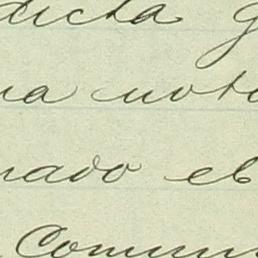 dicta g
na noto
nado el
Comun